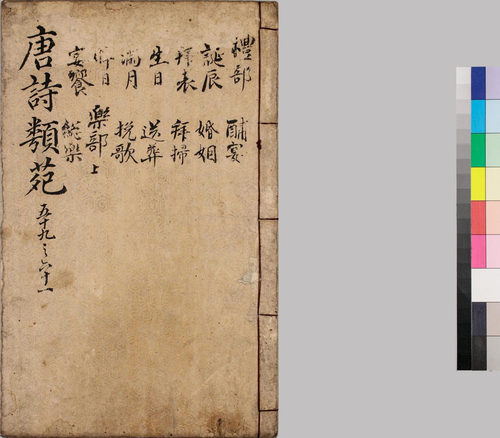 禮部 酺宴
誕辰 婚姻
拜表 拜掃
生日 送葬
滿月 挽歌
日 樂部上
宴饗 総樂
唐詩類苑 五十九之六十一